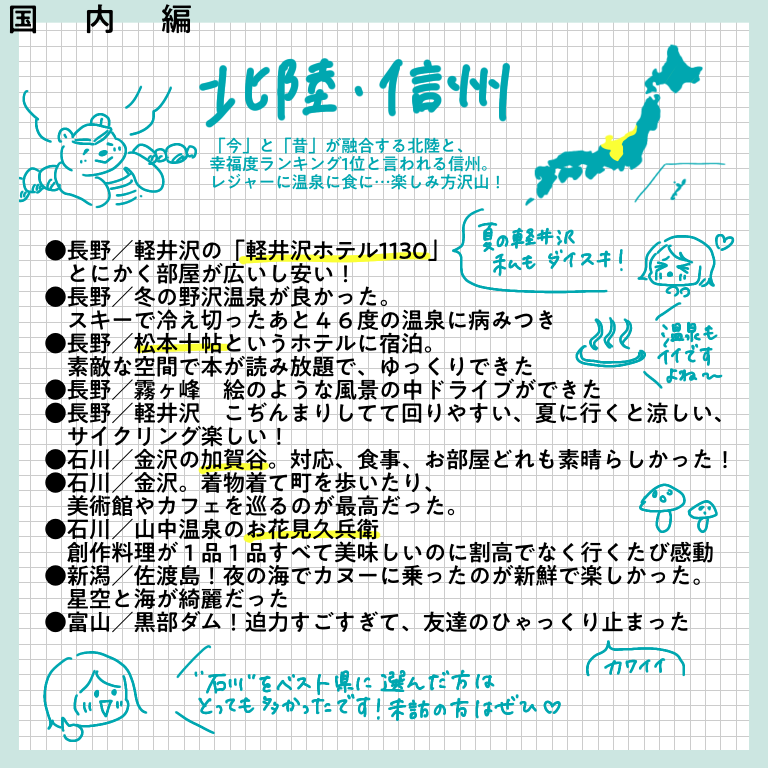 国内編
北陸・信州
「今」と「昔」が融合する北陸と、
幸福度ランキング1位と言われる信州。
レジャーに温泉に食に…楽しみ方沢山！
夏の軽井沢
私も ダイスキ！
●長野／軽井沢の「軽井沢ホテル1130」
とにかく部屋が広いし安い！
●長野／冬の野沢温泉が良かった。
スキーで冷え切ったあと４６度の温泉に病みつき
温泉も
イイです
よね〜
●長野／松本十帖というホテルに宿泊。
素敵な空間で本が読み放題で、ゆっくりできた
●長野／霧ヶ峰　絵のような風景の中ドライブができた
●長野／軽井沢　こぢんまりしてて回りやすい、夏に行くと涼しい、
サイクリング楽しい！
●石川／金沢の加賀谷。対応、食事、お部屋どれも素晴らしかった！
●石川／金沢。着物着て町を歩いたり、
美術館やカフェを巡るのが最高だった。
●石川／山中温泉のお花見久兵衛
創作料理が１品１品すべて美味しいのに割高でなく行くたび感動
●新潟／佐渡島！夜の海でカヌーに乗ったのが新鮮で楽しかった。
星空と海が綺麗だった
●富山／黒部ダム！迫力すごすぎて、友達のひゃっくり止まった
カワイイ
"石川"をベスト県に選んだ方は
とっても多かったです！未訪の方はぜひ♡